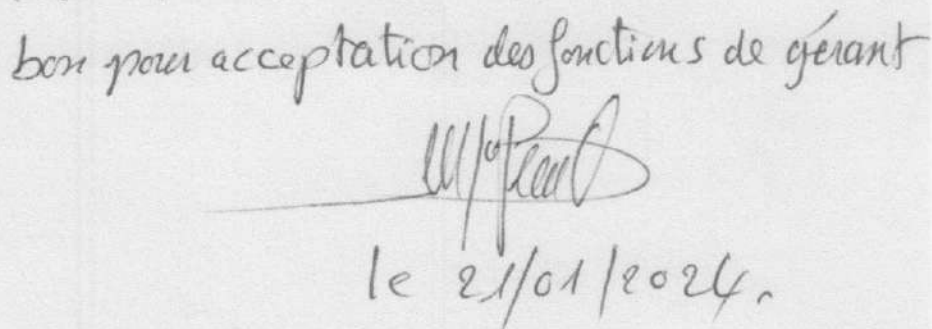 bon pour acceptation des fonctions de gérant
le 21/01/2024.